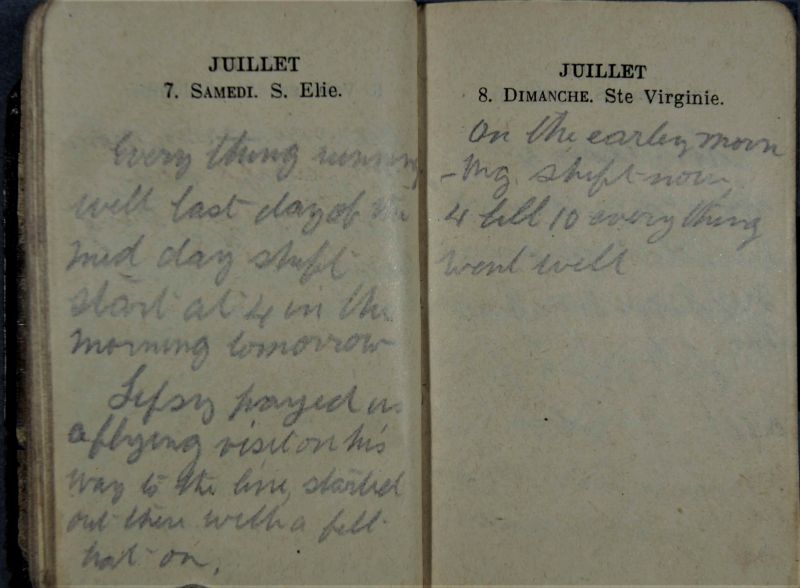 JUILLET
7. SAMEDI. S. Elie.
Every thing running
well last day of the
mid day shift
start at 4 in the
morning tomorrow
payed us
a flying visit on his
way to the line, started
out there with a felt
hat on.
JUILLET
8. DIMANCHE. Ste Virginie.
On the earley morn
-ing shift now,
4 till 10 every thing
went well